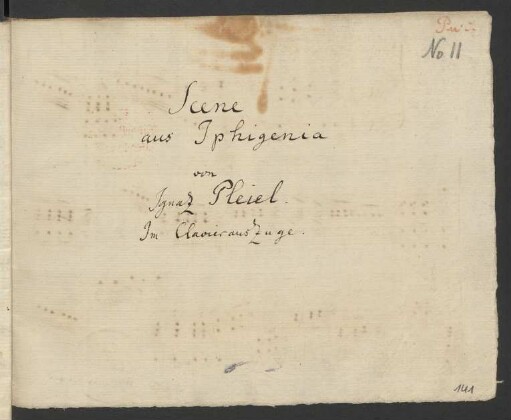 No 11
Scene
aus Iphigenia
von
Ignaz Pleiel.
Im Clavierauszuge.
141